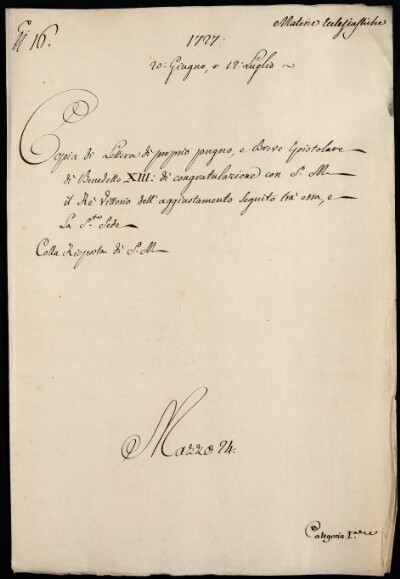 Materie Ecclesiastiche
N 16.
1727.
20. Giugno, e 12. Luglio
Copia di Lettera di proprio pugno, e Breve Epistolare
di Benedetto XIII: di congratulazione con S. M.
il Re Vittorio dell' aggiustamento seguito tra essa, e
La S.ta Sede
Colla Risposta di S. M.
Mazzo 24.
Categoria I.